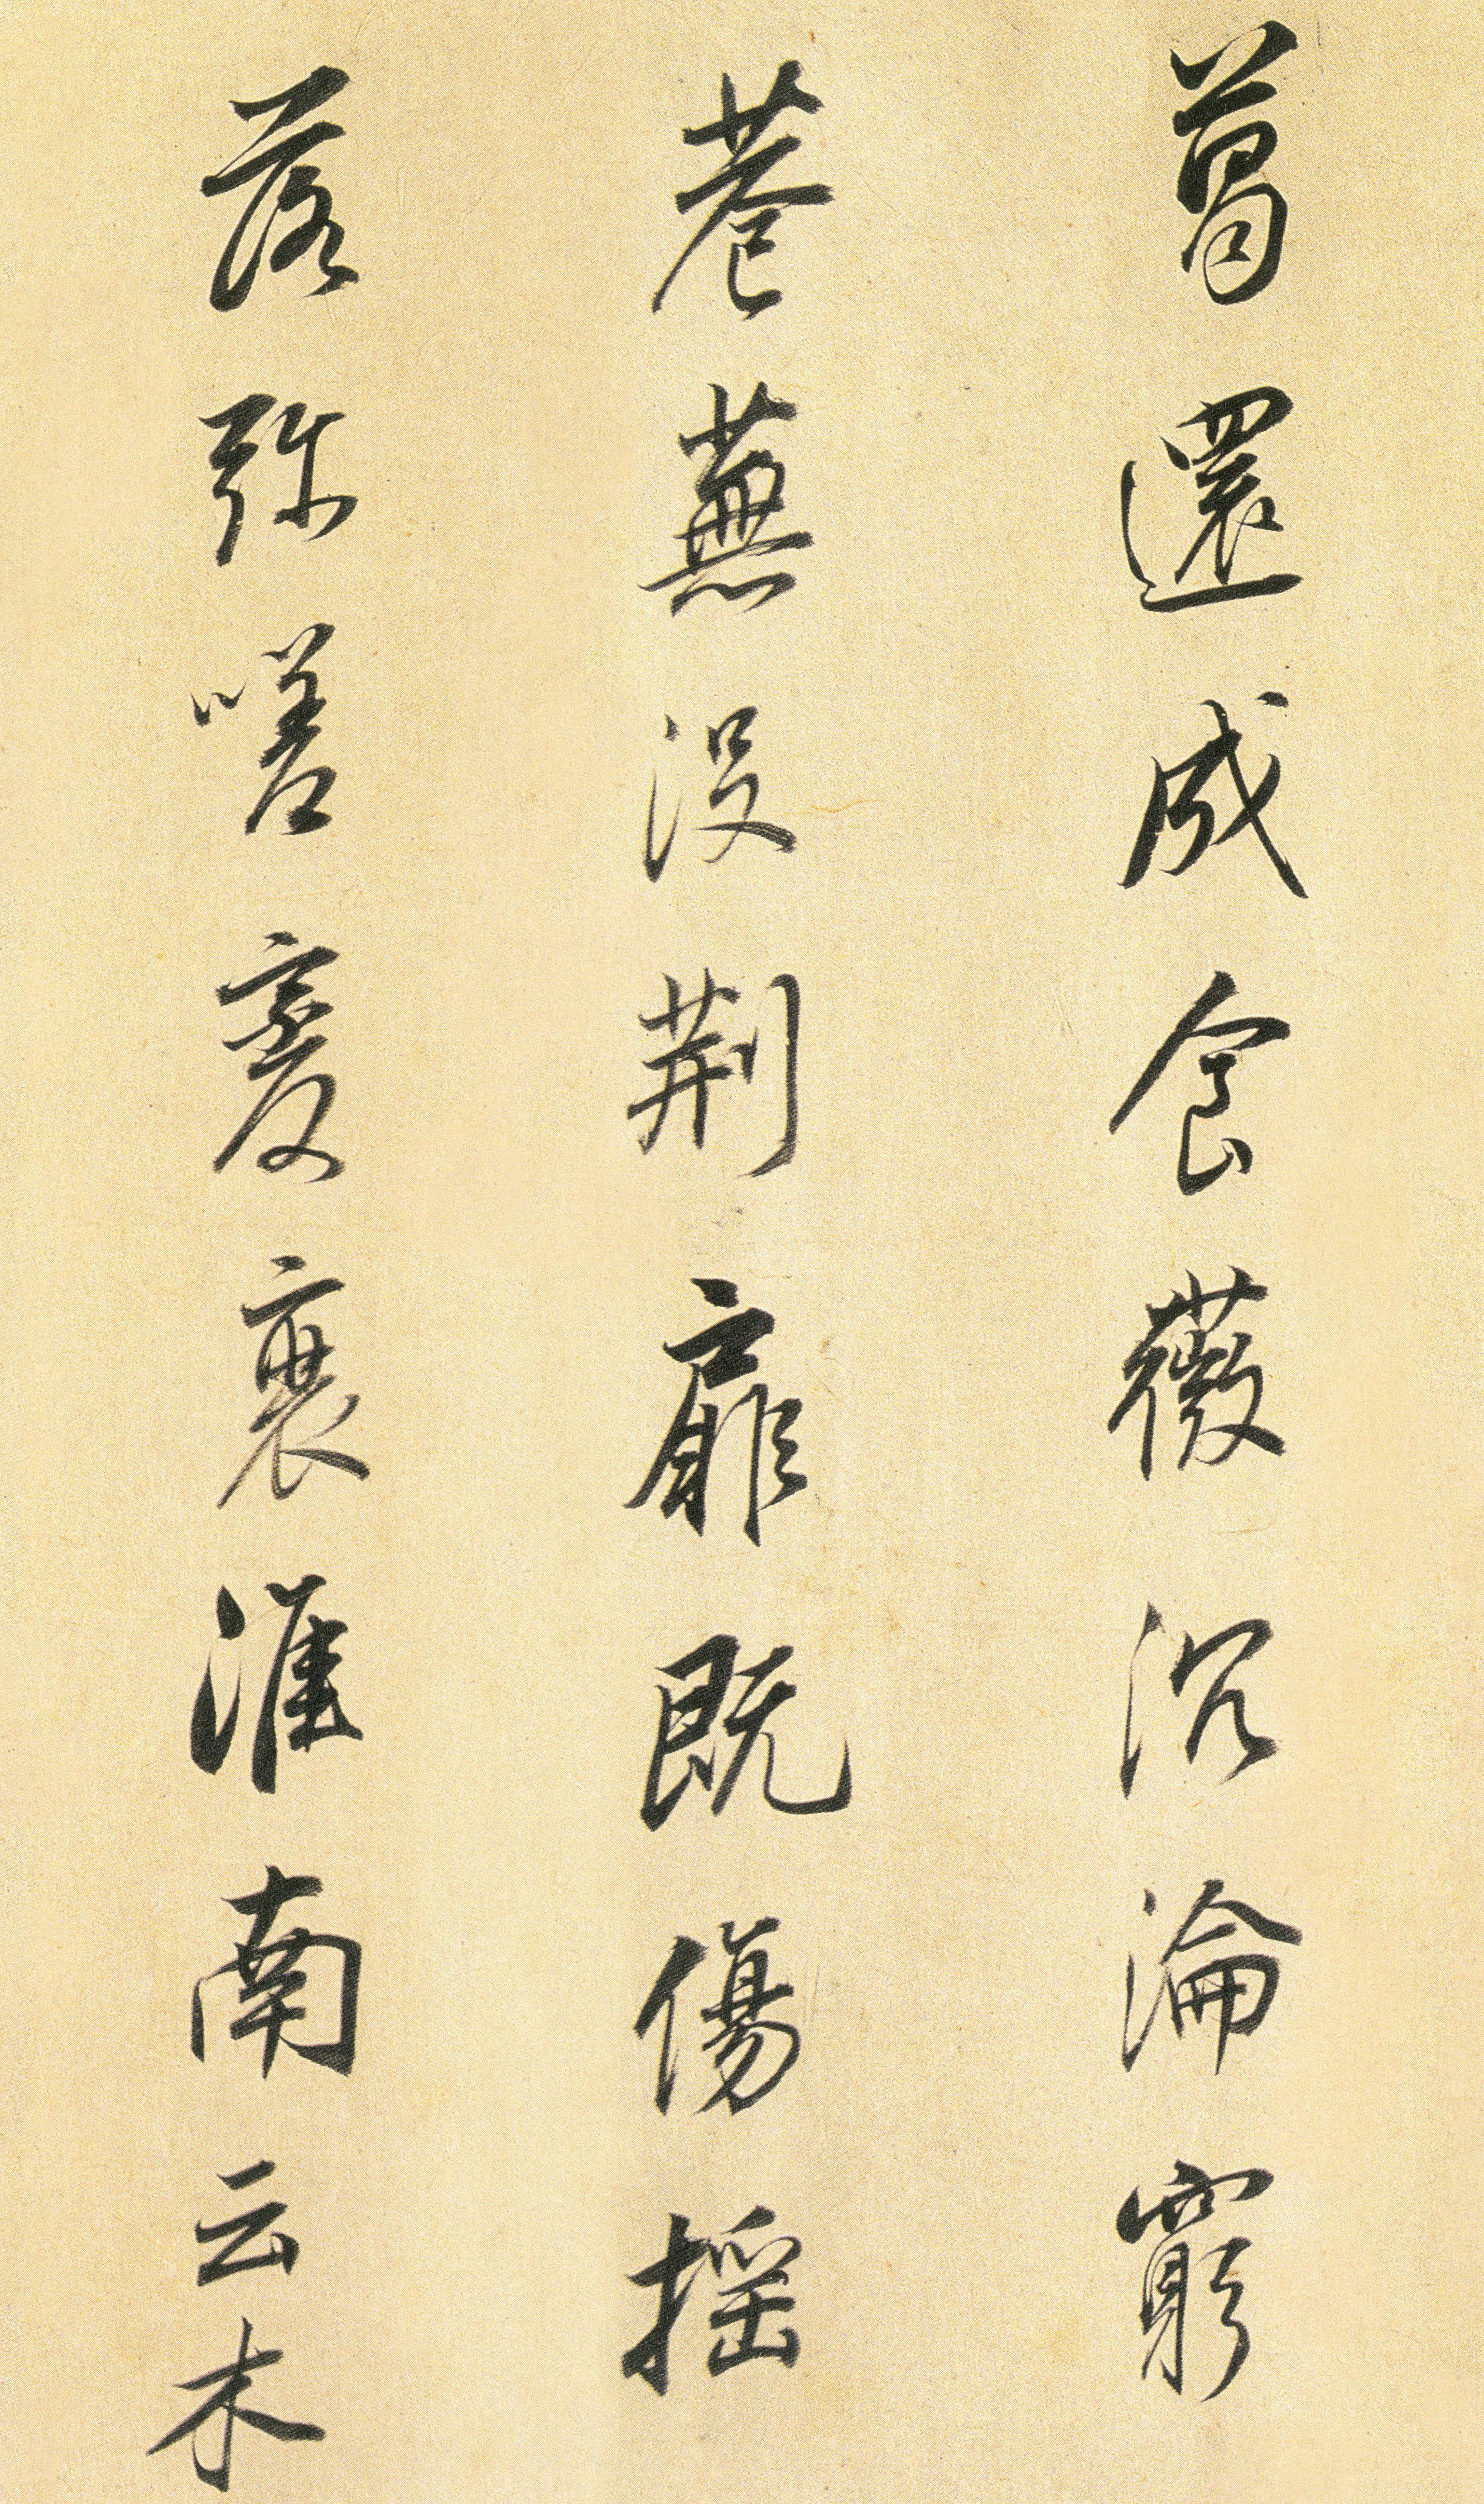 葛還成食薇沉淪窮
巷蕪没荆扉既傷摇
落弥嗟變衰淮南云木